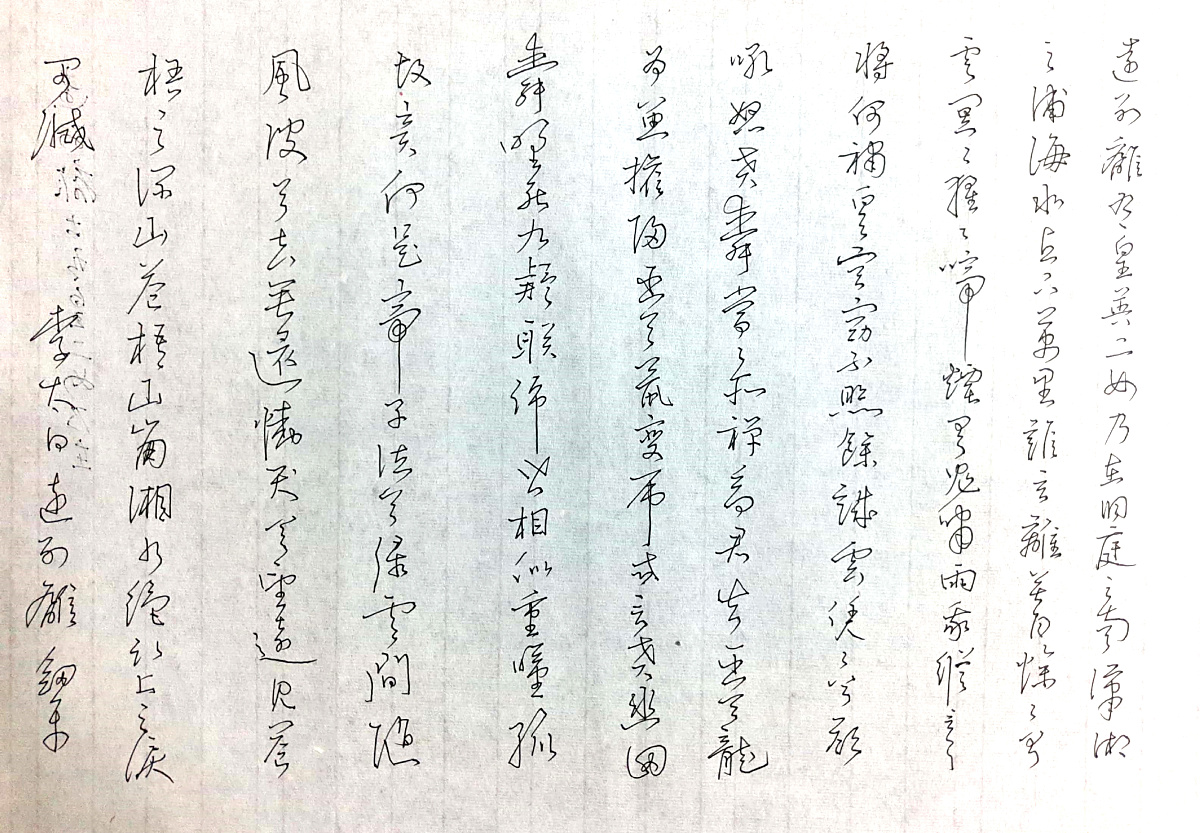 遠別離古皇英二女乃在洞庭之南瀟湘
之浦海水直下萬里誰言離苦日慘〻兮
雲冥〻猩〻啼煙兮鬼嘯雨我縱言
將何補皇穹竊不照餘誠雲凭〻兮欲
吼怒堯舜當之亦禪禹君失臣兮龍
為魚權歸臣兮鼠變虎或言堯幽囚
舜野死九疑联綿皆相似重瞳孤
墳竟何是帝子泣兮綠雲間隨
風波兮去無還慟哭兮望遠見蒼
梧之深山蒼梧山崩湘水絕竹上之淚
乃可滅 李太白遠別離